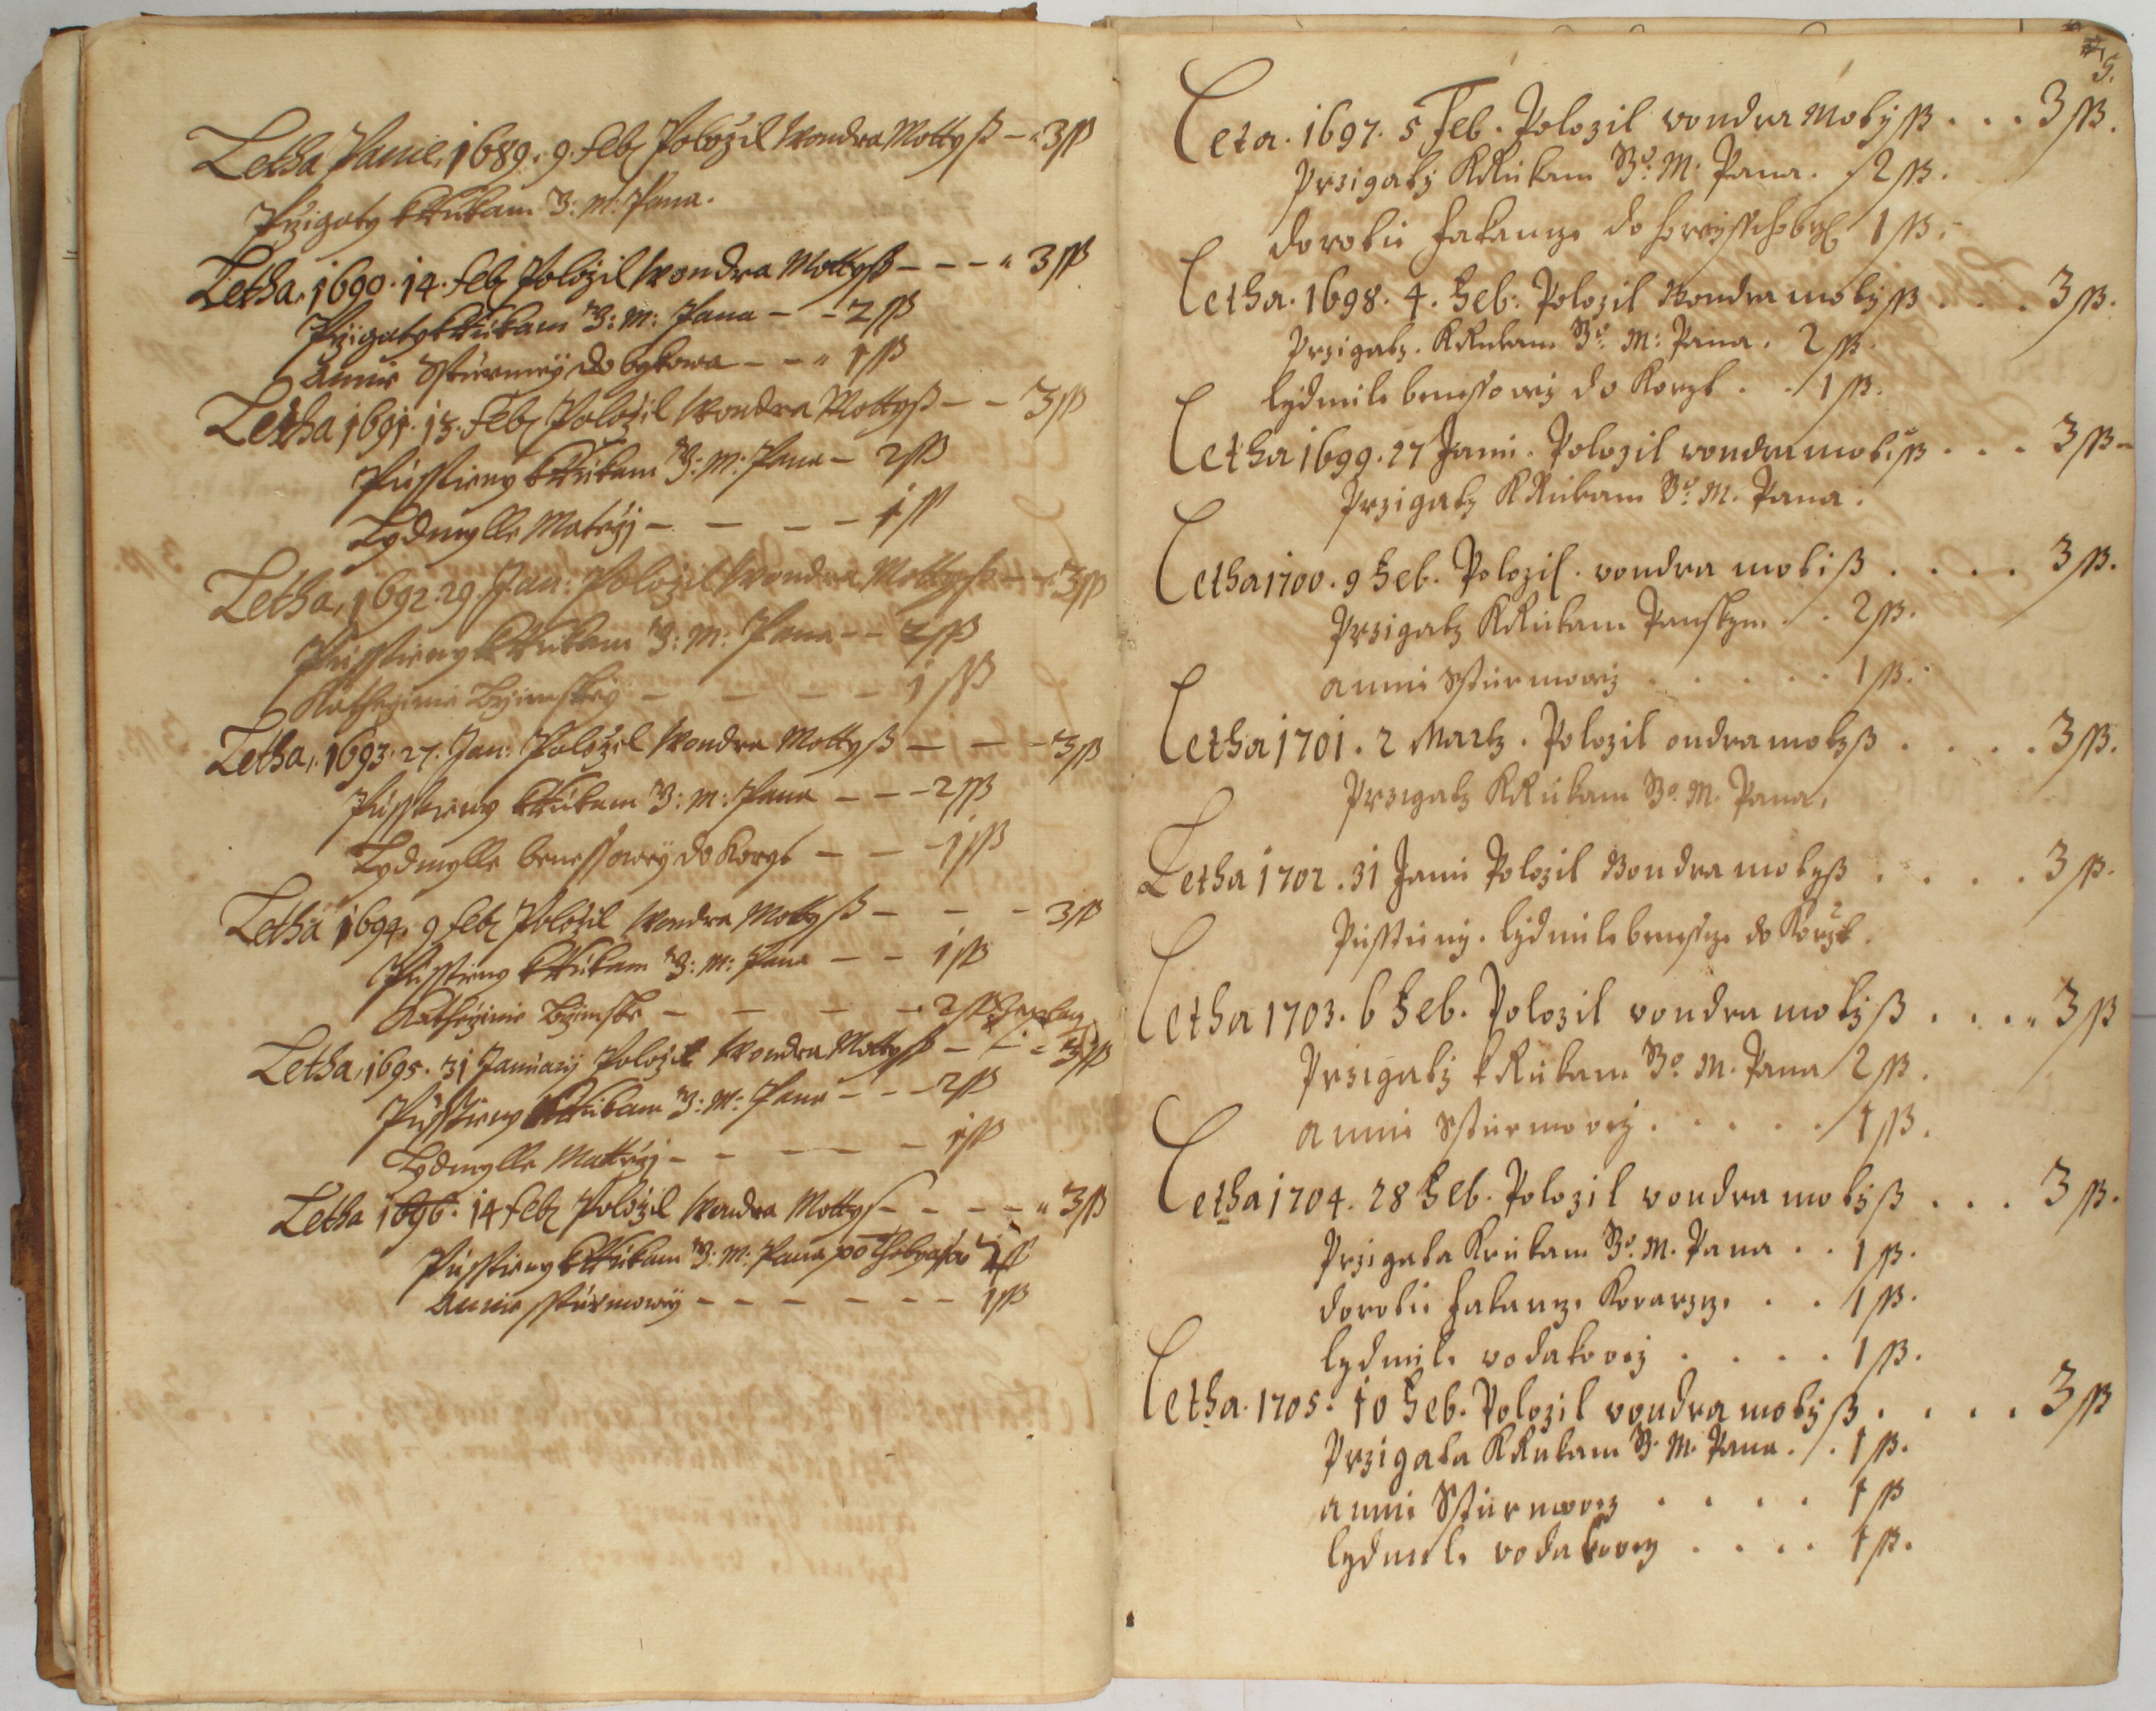 Letha Panie, 1689. 9. Feb. Położil Wondra Mottyß – 3 ſß
Przigaty k Rukam J: M: Pana.
Letha, 1690. 14. Feb. Położil Wondra Mottyß – – – 3 ſß
Przigaty k Rukam J: M: Pana – – 2 ſß
Annie Ssturmeÿ do bykowa – – 1 ſß
Letha 1691. 13. Feb. Położil Wondra Mottyß – – 3 ſß
Pusstieny k Rukam J: M: Pana – 2 ſß
Lydmylle Mateÿ – – – – 1 ſß
Letha, 1692. 29. Jan: Położil Wondra Mottyß – – 3 ſß
Pusstieny k Rukam J: M: Pana – – 2 ſß
Katherzinie – – – – 1 ſß
Letha, 1693. 27. Jan: Położil Wondra Mottyß – – – 3 ſß
Pusstieny k Rukam J: M: Pana – – – 2 ſß
Lydmylle benessoweÿ do Koryt – – 1 ſß
Letha 1694. 9 Feb. Położil Wondra Mottyß – – – 3 ſß
Pusstieny k Rukam J: M: Pana – – 1 ſß
Katherzinie – – – – 2 ſß
Letha, 1695. 31 Januarÿ Położil Wondra Mottyß – – 3 ſß
Pusstieny k Rukam J: M: Pana – – – 2 ſß
Lydmylle Matteÿ – – – – – 1 ſß
Letha 1696. 14 Feb. Położil Wondra Mottyß – – – – 3 ſß
Pusstieny k Rukam J: M: Pana po 2 ſß
Annie ssturmoweÿ – – – – – – 1 ſß
5.
Leta. 1697. 5 Feb. Polozil vondra Motÿß . . . 3 ſß.
Przigatÿ K Rukam Jo. M. Pana. 2 ſß.
dorotie do 1 ſß.
Letha. 1698. 4. Feb: Polozil Vondra motÿß . . . 3 ſß.
Przigaty. K Rukam Jo: M: Pana. 2 ſß.
lydmile benessowy do Korzt . . 1 ſß.
Letha 1699. 27 Janu. Polozil vondra motiß . . . 3 ſß –
Przigaty K Rukam Jo. M. Pana.
Letha 1700. 9 Feb. Polozil. vondra motiß . . . . 3 ſß.
Przigaty K Rukam Panskym . . 2 ſß.
anni Ssturmowy . . . . . 1 ſß.
Letha 1701. 2 Marty. Polozil ondra motyß . . . . 3 ſß.
Przigaty K Rukam Jo. M. Pana.
Letha 1702. 31 Janu Polozil Vondra motyß . . . . 3 ſß.
Pusstieny. lydmile do Korzt.
Letha 1703. 6 Feb. Polozil vondra motyß . . . 3 ſß
Przigatÿ k Rukam Jo. M. Pana 2 ſß.
anni Ssturmovy . . . . . 1 ſß.
Letha 1704. 28 Feb. Polozil vondra motyß . . . 3 ſß.
Przigata Krukam Jo. M. Pana . . 1 ſß.
dorotie Kovarzy. . . 1 ſß.
lydmile vodakovy . . . . 1 ſß.
Letha. 1705. 10 Feb. Polozil vondra motÿß . . . . 3 ſß
Przigata K Rukam J. M. Pana . . 1 ſß.
anni Ssturmovy . . . . 1 ſß
lydmile vodakovy . . . . 1 ſß.